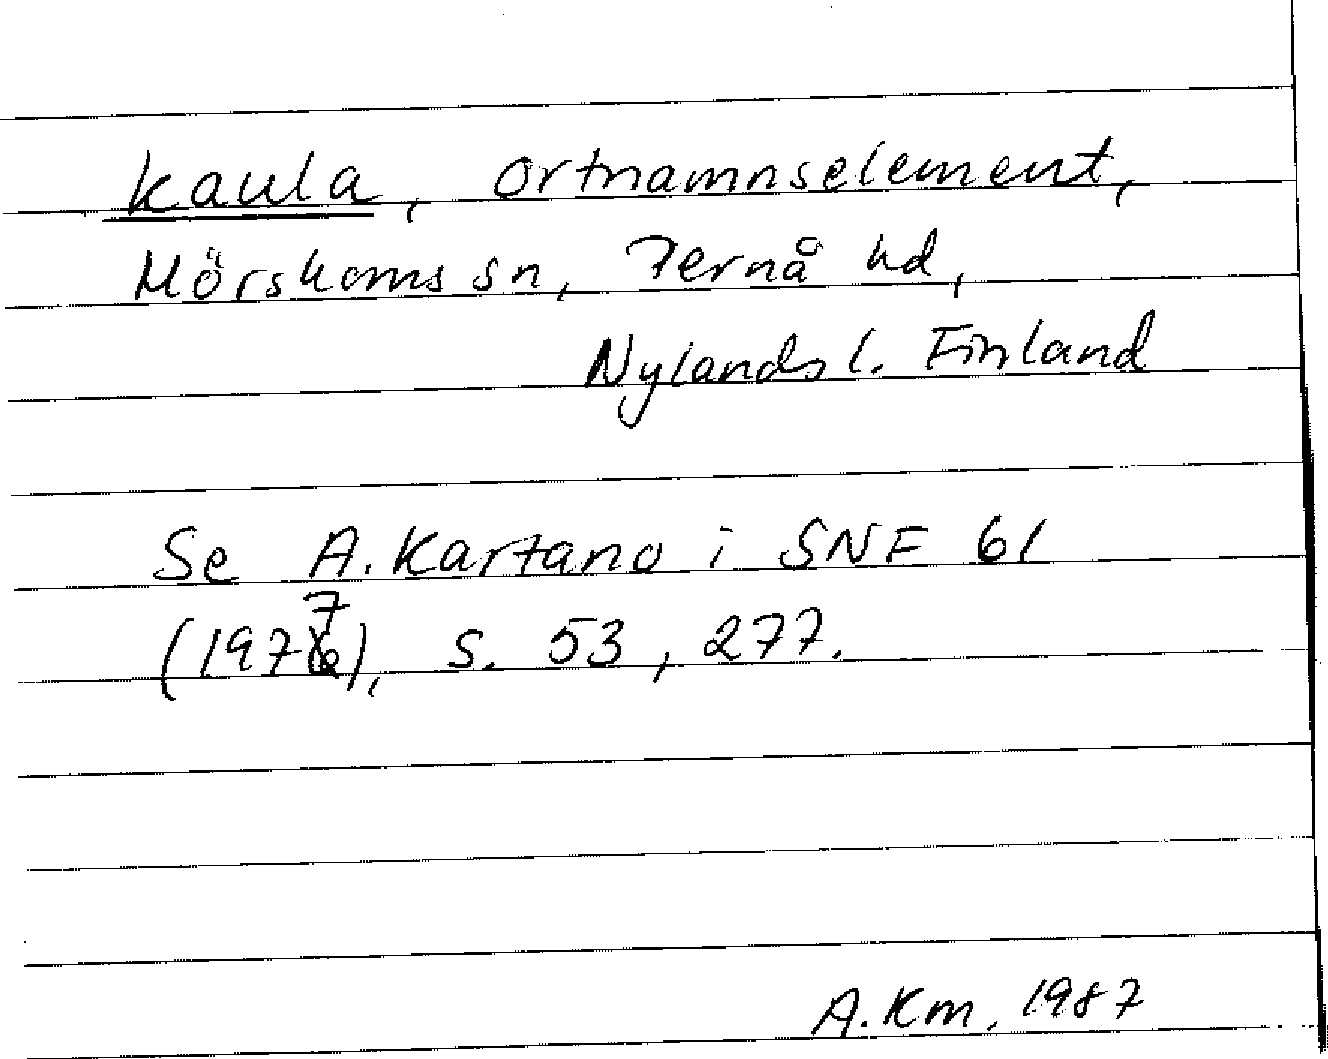 kaula, ortnamnselement,
Mörskoms sn, Pernå hd,
Nylands l. Finland
Se A. Kartano i SNF 61
(1977), s. 53, 277.
A. Km. 1987